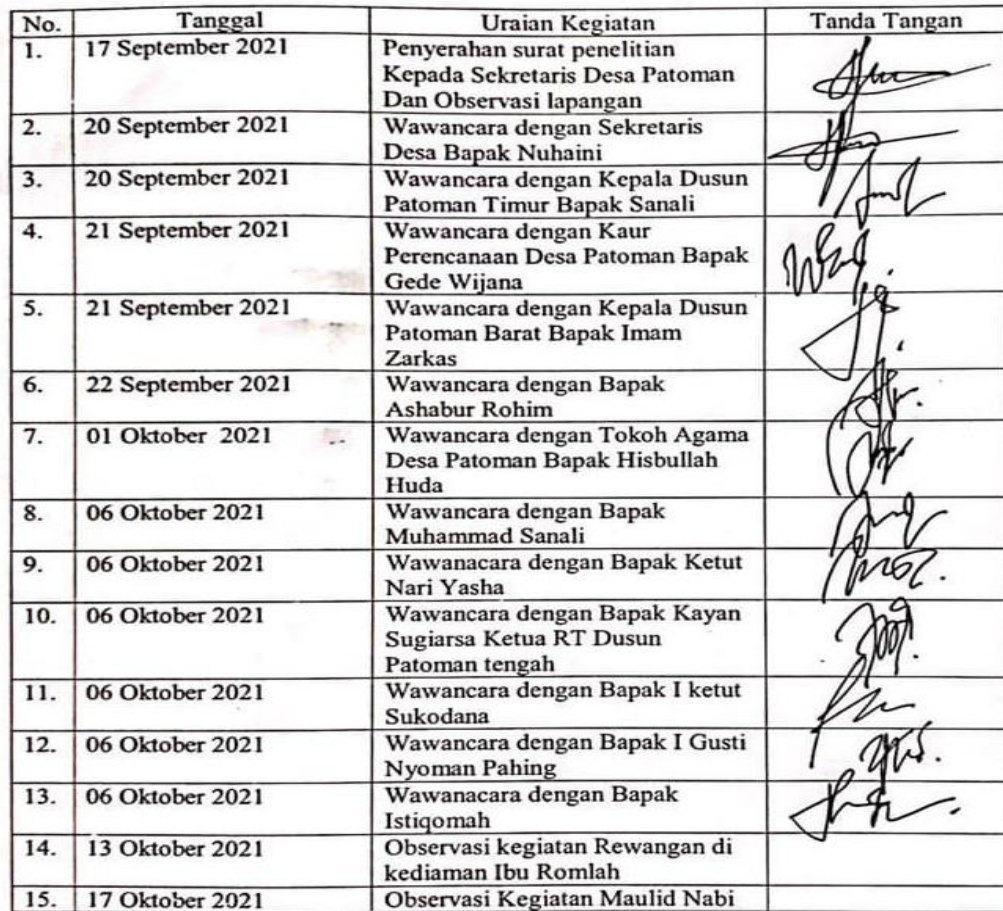 No. Tanggal Uraian Kegiatan Tanda Tangan
1. 17 September 2021 Penyerahan surat penelitian
Kepada Sekretaris Desa Patoman
Dan Observasi lapangan
2. 20 September 2021 Wawancara dengan Sekretaris
Desa Bapak Nuhaini
3. 20 September 2021 Wawancara dengan Kepala Dusun
Patoman Timur Bapak Sanali
4. 21 September 2021 Wawancara dengan Kaur
Perencanaan Desa Patoman Bapak
Gede Wijana
5. 21 September 2021 Wawancara dengan Kepala Dusun
Patoman Barat Bapak Imam
Zarkas
6. 22 September 2021 Wawancara dengan Bapak
Ashabur Rohim
7. 01 Oktober 2021 Wawancara dengan Tokoh Agama
Desa Patoman Bapak Hisbullah
Huda
8. 06 Oktober 2021 Wawancara dengan Bapak
Muhammad Sanali
9. 06 Oktober 2021 Wawanacara dengan Bapak Ketut
Nari Yasha
10. 06 Oktober 2021 Wawancara dengan Bapak Kayan
Sugiarsa Ketua RT Dusun
Patoman tengah
11. 06 Oktober 2021 Wawancara dengan Bapak I ketut
Sukodana
12. 06 Oktober 2021 Wawancara dengan Bapak I Gusti
Nyoman Pahing
13. 06 Oktober 2021 Wawanacara dengan Bapak
Istiqomah
14. 13 Oktober 2021 Observasi kegiatan Rewangan di
kediaman Ibu Romlah
15. 17 Oktober 2021 Observasi Kegiatan Maulid Nabi